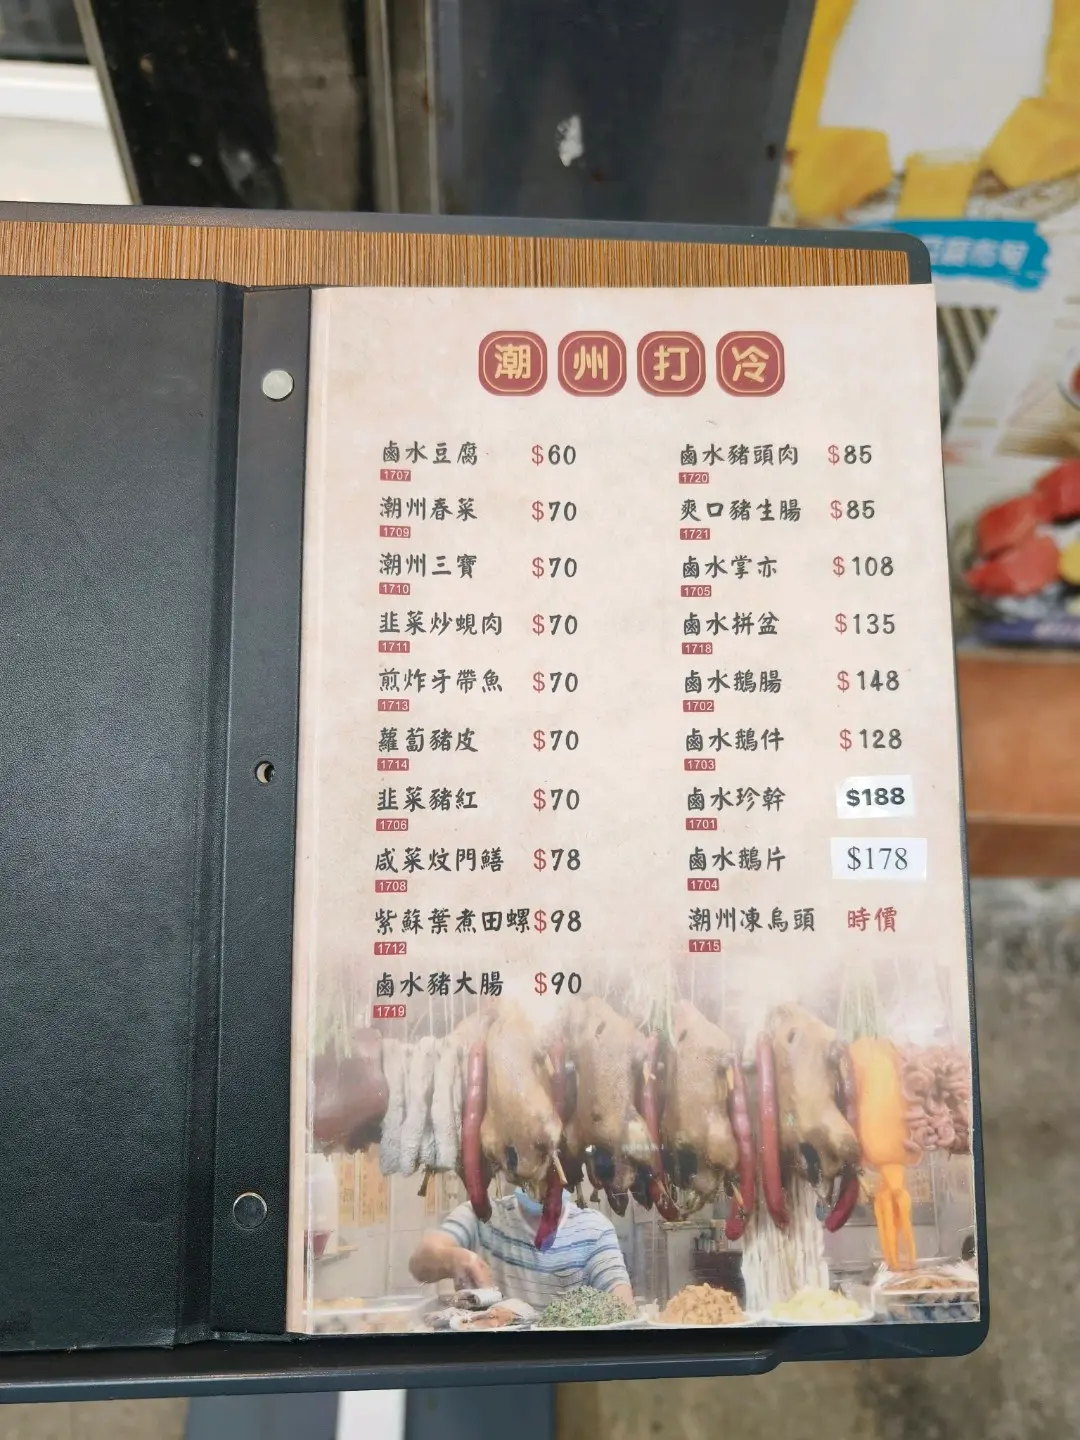 潮州打冷
鹵水豆腐 $60
1707
潮州春菜 $70
1709
潮州三寶 $70
1710
韭菜炒蜆肉 $70
1711
煎炸牙帶魚 $70
1713
蘿蔔豬皮 $70
1714
韭菜豬紅 $70
1706
咸菜炆門鱔 $78
1708
紫蘇葉煮田螺 $98
1712
鹵水豬大腸 $90
1719
鹵水豬頭肉 $85
1720
爽口豬生腸 $85
1721
鹵水掌亦 $108
1705
鹵水拼盆 $135
1718
鹵水鵝腸 $148
1702
鹵水鵝件 $128
1703
鹵水珍幹 $188
1701
鹵水鵝片 $178
1704
潮州凍烏頭 時價
1715